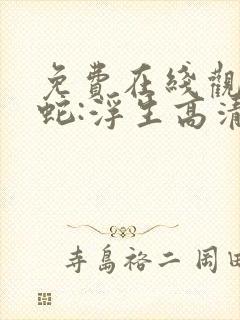 免費在綫觀
蛇:浮生高清
寺島裕二 岡田